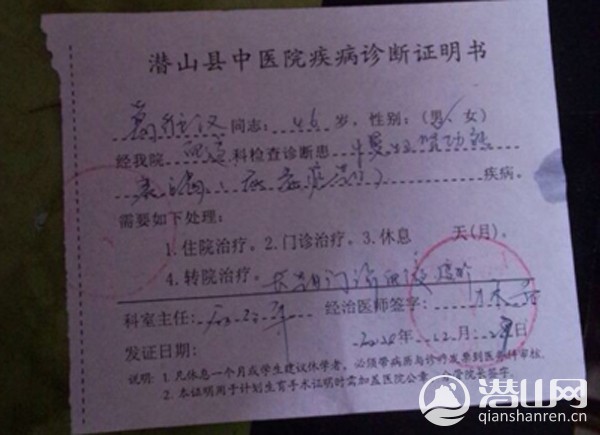 潜山县中医院疾病诊断证明书
同志: 46 岁,性别:(男、女)
经我院 血透 科检查诊断患 慢性肾功能
衰竭(尿毒症期) 疾病。
需要如下处理:
1.住院治疗。2.门诊治疗。3.休息 天(月)。
4.转院治疗。长期门诊血液透析
科室主任: 经治医师签字:
发证日期: 年 12 月 日
说明: 1.凡休息一个月或学生建议休学者,必须带病历与诊疗发票到医教科审核。
2.本证明用于计划生育手术证明时需加盖医院公章,
潜山网
qianshanren.cn